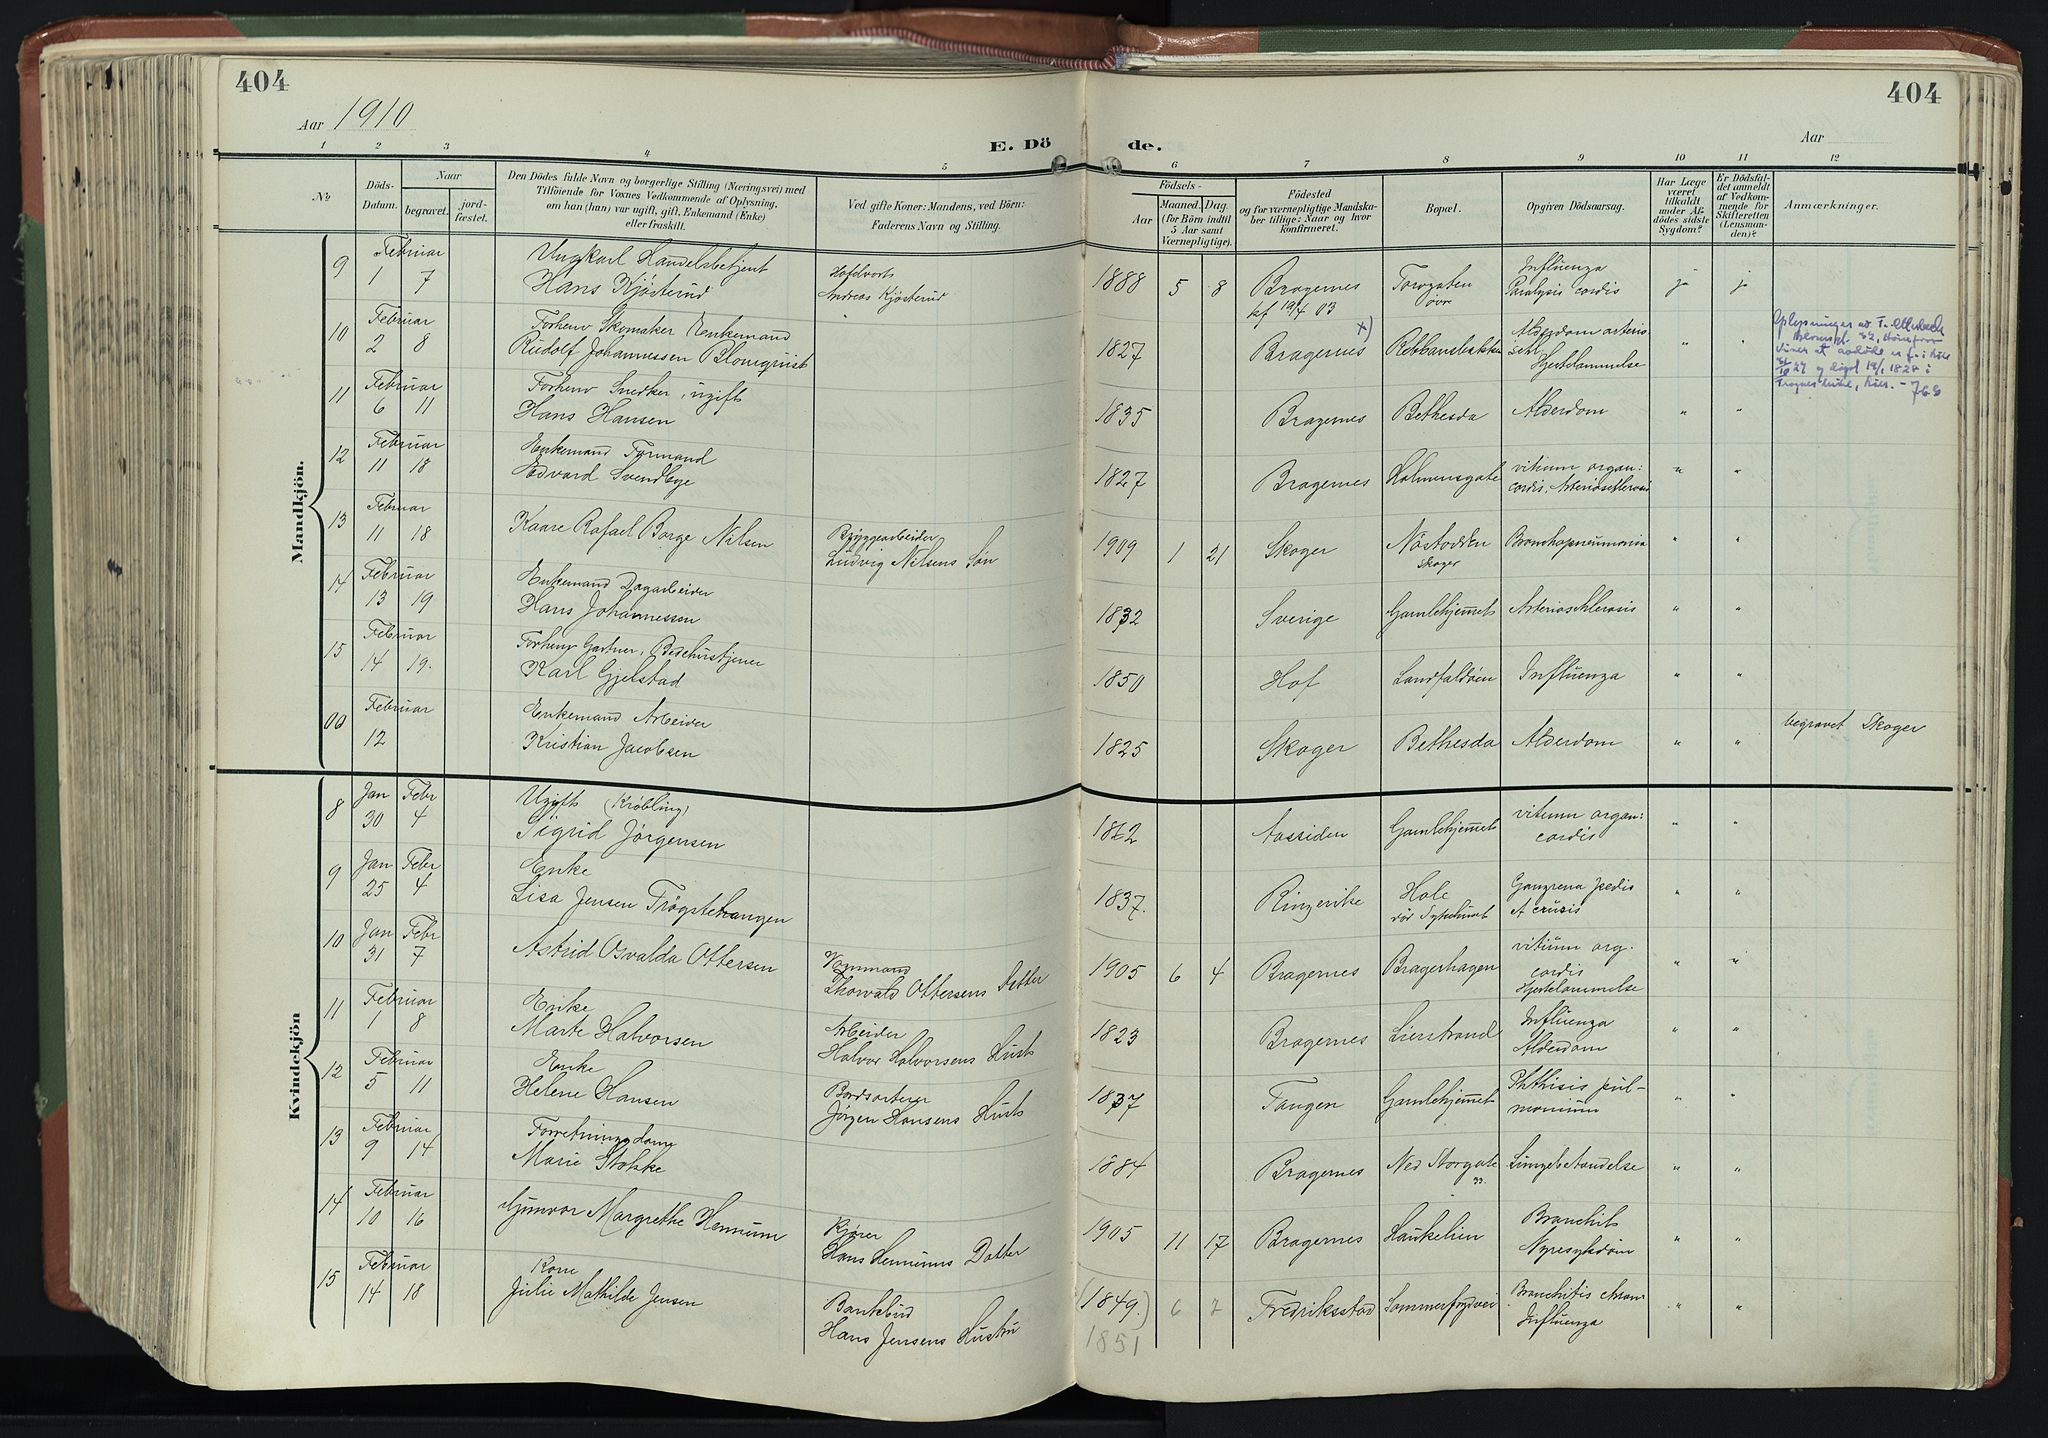 404
404
Aar 1910
Aar
E. Dö
de.
1 2 3 4 5 6 7 8 9 10 11 12
№
Döds-
Datum.
Naar
begravet.
jord-
fæstet.
Den Dödes fulde Navn og borgerlige Stilling (Næringsvei) med
Tilföiende for Voxnes Vedkommende af Oplysning,
om han (hun) var ugift, gift, Enkemand (Enke)
eller fraskilt.
Ved gifte Koner: Mandens, ved Börn:
Faderens Navn og Stilling.
Födsels-
Aar
Maaned.
Dag.
(for Börn indtil
5 Aar samt
Værnepligtige).
Födested
og for værnepligtige Mandska-
ber tillige: Naar og hvor
Konfirmeret.
Bopæl.
Opgiven Dödsaarsag.
Har Læge
været
tilkaldt
under Af-
dödes sidste
Sygdom?
Er Dödsfal-
det anmeldt
af Vedkom-
mende for
Skifteretten
(Lensman-
den)?
Anmærkninger.
Mandkjön.
9 Februar 1 7 Ungkarl Handelsbetjent
Hans Kjösterud
Andreas Kjösterud
1888 5 8 Bragernes
kf 12/4 03
Torvgaten
øvre
Influenza
Paralysis cordis
ja
ja
10 Februar 2 8 Forhenv Skomaker Enkemand
Rudolf Johannessen Blomquist
1827 Bragernes x)
Alderdom arterio
Hjertelammelse
" "
11 Februar 6 11 Forhenv Snedker, ugift
Hans Hansen
1835 Bragernes Bethesda Alderdom " "
12 Februar 11 18 Enkemand Formand
Edvard Svendbye
1827 Bragernes Holmensgate vitium organ:
cordis. Arteriosclerosis
" "
13 Februar 11 18 Kaare Rafael Borge Nilsen
Bryggearbeider
Ludvig Nilsens Søn
1909 1 21 Skoger
Skoger
Bronchopneumonia
" "
14 Februar 13 19 Enkemand Dagarbeider
Hans Johannessen
1832 Sverige Gamlehjemmet Arteriosklerosis " "
15 Februar 14 19. Forhenv Gartner, Bedehustjener
Karl Gjelstad
1850 Hof Landfaldøen Influenza " "
00 Februar 12 Enkemand Arbeider
Kristian Jacobsen
1825 Skoger Bethesda Alderdom " " begravet Skoger
Kvindekjön
8 Jan 30 Febr 4 Ugift (Krøbling)
Sigrid Jørgensen
1862 Aassiden Gamlehjemmet vitium organ:
cordis
" "
9 Jan 25 Febr 4 Enke
Lisa Jensen Trøgstehaugen
1837. Ringerike Hole
Gangrena pedis
et cruris
" "
10 Jan 31 Febr 7 Astrid Osvalda Ottersen
Thorvald Ottersens Datter
1905 6 4 Bragernes Bragerhagen vitium org.
cordis
Hjertelammelse
" "
11 Februar 1 8 Enke
Marte Halvorsen
Arbeider
Halvor Halvorsens Hust
1823 Bragernes Lierstrand Influenza
Alderdom
" "
12 Februar 5 11 Enke
Helene Hansen
Bordsorterer
Jørgen Hansens Hust
1837 Tangen Gamlehjemmet Phthisis pul-
monum
" "
13 Februar 9 14 Forretningsdame
Marie Stokke
1884 Bragernes Ned Storgate
Lungebetændelse
" "
14 Februar 10 16 Gunvor Margrethe Hennum
Kjører
Hans Hennums Datter
1905 11 17 Bragernes Haukelien Bronchit
Nyresykdom
" "
15 Februar 14 18 Kone
Julie Mathilde Jensen
Bankbud
Hans Jensens Hustru
(1849.) 6 7
1851
Fredriksstad Sommerfrydvei Bronchitis chron
Influenza
" "